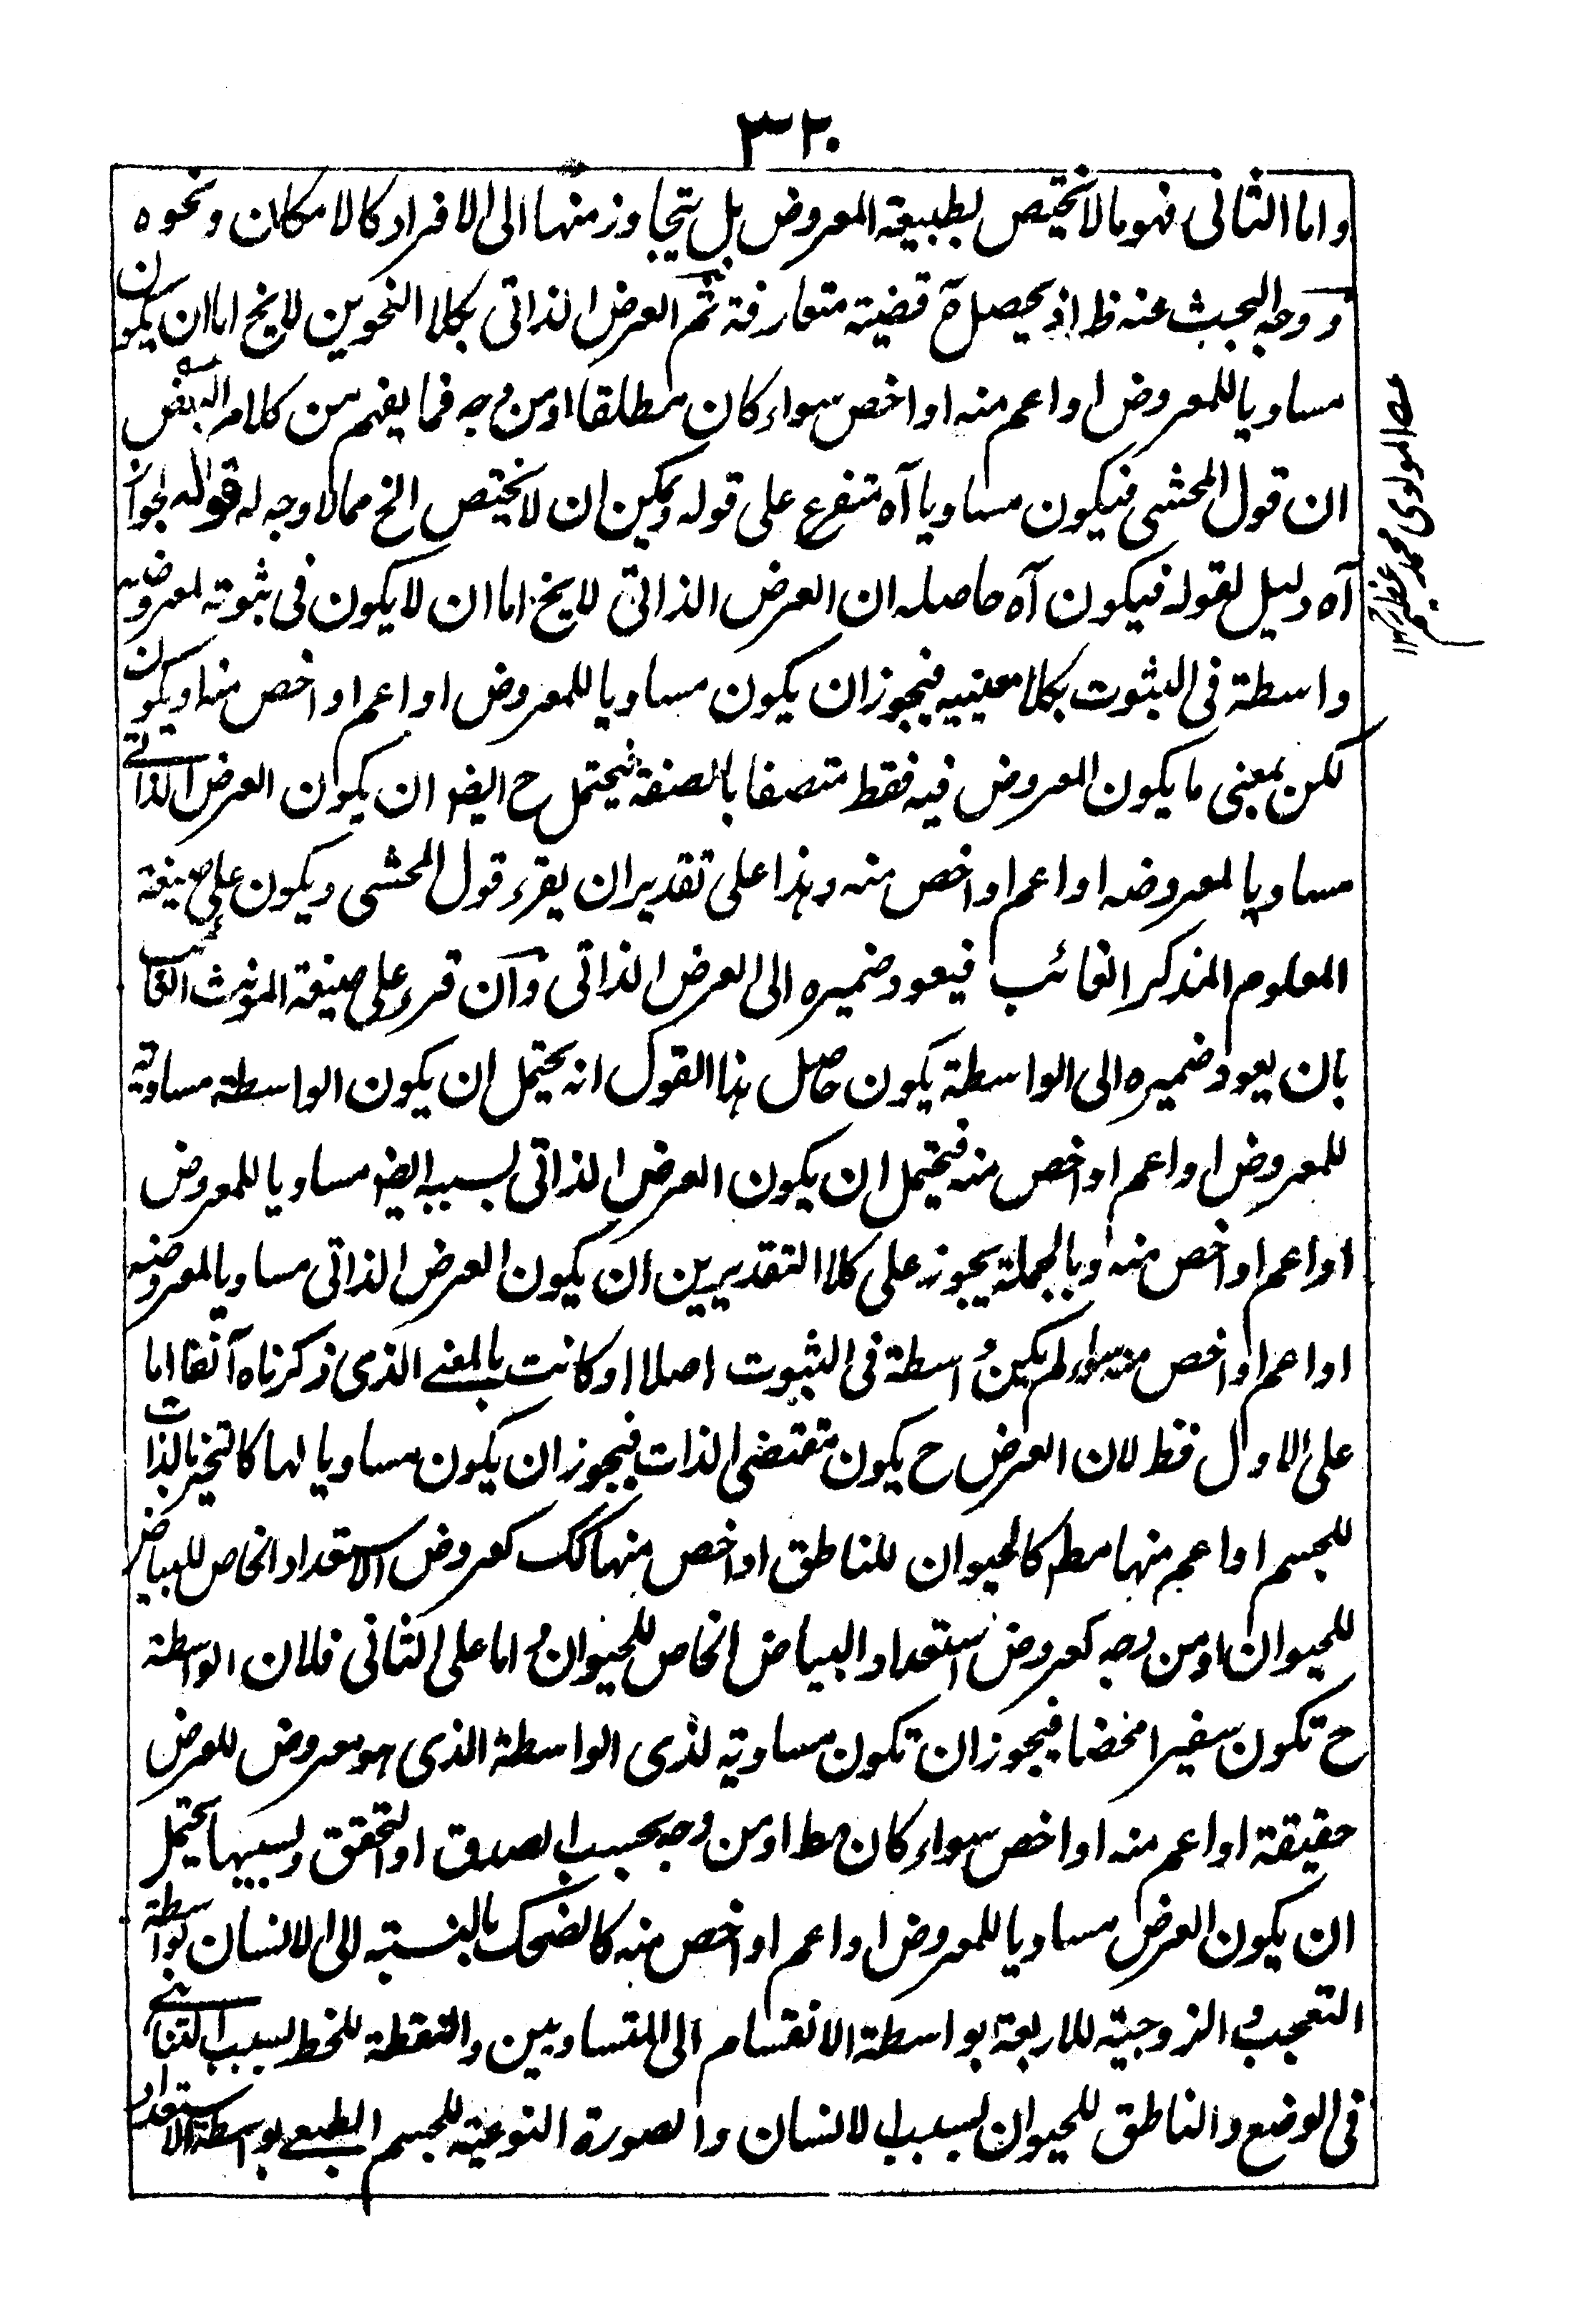 ٣٢٠
واما الثانى فهو ما لا يختص بطبيعة المعروض بل يتجاوز منها الى الافراد كالامكان ونحوه
ووجه البحث عنه ظ اذ يحصل ح قضية متعارفة ثم العرض الذاتى بكلا النحوين لا يخ اما ان يكون
مساويا للمعروض او اعم منه او اخص سواء كان مطلقا او من وجه فما يفهم من كلام البعض
ان قول المحشى فيكون مساويا آه متفرع على قوله ويمكن ان لا يختص الخ مما لا وجه له قوله لجواز
آه دليل لقوله فيكون آه حاصله ان العرض الذاتى لا يخ اما ان لا يكون فى ثبوته لمعروضه
واسطة فى الثبوت بكلا معنييه فيجوز ان يكون مساويا للمعروض او اعم او اخص منه او يكون
لكن بمعنى ما يكون المعروض فيه فقط متصفا بالصفة فيحتمل ح ايضا ان يكون العرض الذاتى
مساويا لمعروضه او اعم او اخص منه وهذا على تقدير ان يقرء قول المحشى ويكون على صيغة
المعلوم المذكر الغائب فيعود ضميره الى العرض الذاتى وآن قرء على صيغة المونث الغائب
بان يعود ضميره الى الواسطة يكون حاصل هذا القول انه يحتمل ان يكون الواسطة مساوية
للمعروض او اعم او اخص منه فيحتمل ان يكون العرض الذاتى بسببه ايضا مساويا للمعروض
او اعم او اخص منه وبالجملة يجوز على كلا التقديرين ان يكون العرض الذاتى مساويا لمعروضه
او اعم او اخص منه سواء لم يكن واسطة فى الثبوت اصلا او كانت بالمعنے الذى ذكرناه آنفا اما
على الاول فظ لان العرض ح يكون مقتضى الذات فيجوز ان يكون مساويا لها كالتحيز بالذات
للجسم او اعم منها مط كالحيوان للناطق او اخص منها كك كعروض الاستعداد الخاص للبياض
للحيوان او من وجه كعروض استعداد البياض الخاص للحيوان واما على الثانى فلان الواسطة
ح تكون سفيرا محضا فيجوز ان تكون مساوية لذى الواسطة الذى هو معروض للعرض
حقيقة او اعم منه او اخص سواء كان مط او من وجه بحسب الصدق او التحقق وبسببها يحتمل
ان يكون العرض مساويا للمعروض او اعم او اخص منه كالضحك بالنسبة الى الانسان بواسطة
التعجب والزوجية للاربعة بواسطة الانقسام الى المتساويين والنقطة للخط بسبب التناهى
فى الوضع والناطق للحيوان بسبب الانسان والصورة النوعية للجسم الطبعے بواسطة الاستعداد